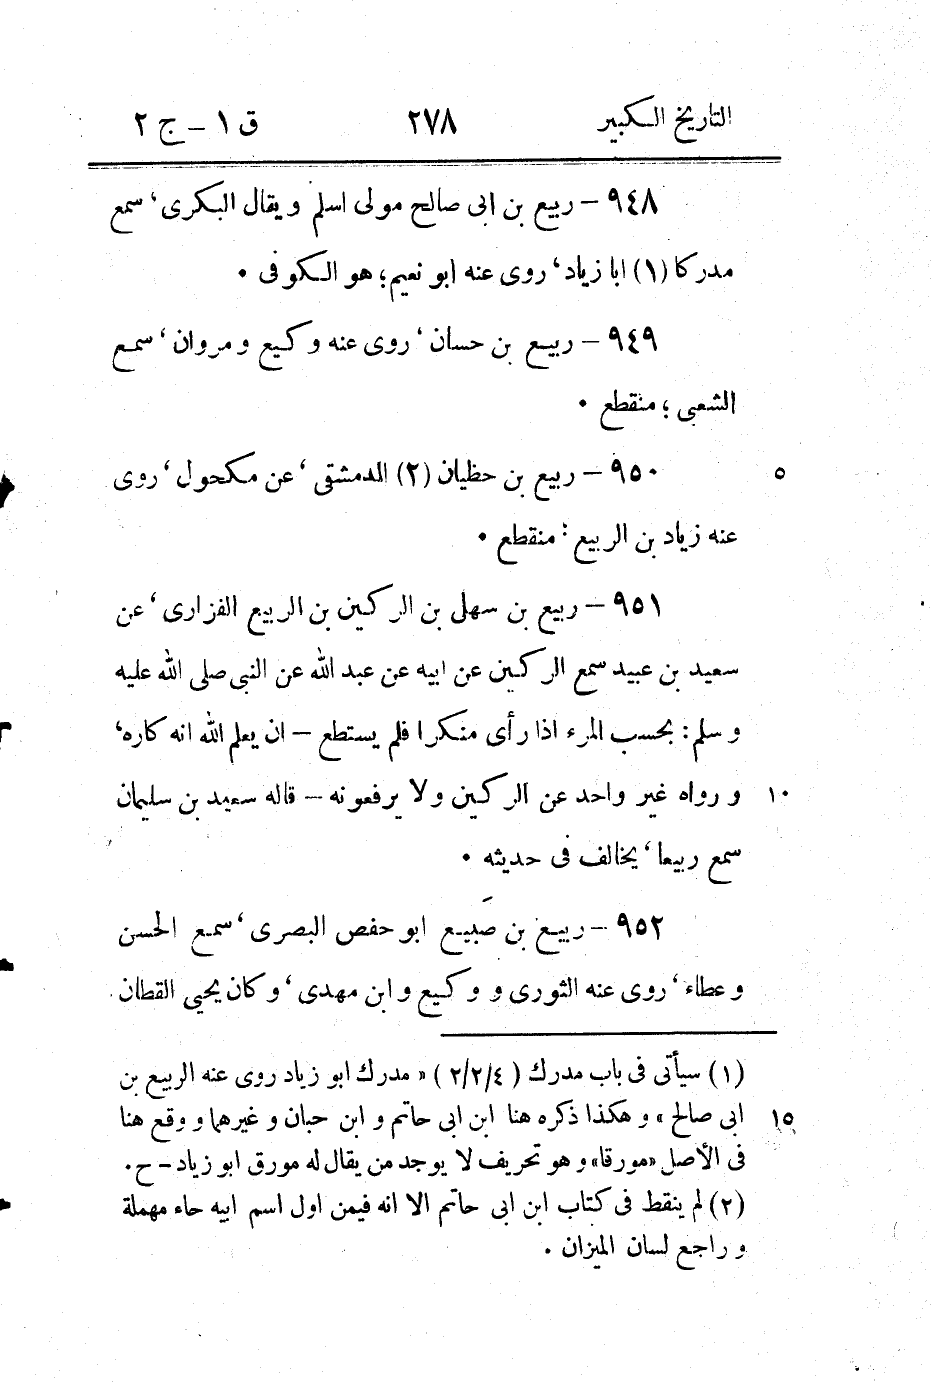 التاريخ الكبير ٢٧٨ ق ١ – ج ٢
٩٤٨ – ربيع بن ابى صالح مولى اسلم ويقال البكرى، سمع
مدركا (١) ابا زياد، روى عنه ابو نعيم؛ هو الكوفى ٠
٩٤٩ – ربيع بن حسان، روى عنه وكيع ومروان، سمع
الشعبى؛ منقطع ٠
٥ ٩٥٠ – ربيع بن حظيان (٢) الدمشقى، عن مكحول، روى
عنه زياد بن الربيع؛ منقطع ٠
٩٥١ – ربيع بن سهل بن الركين بن الربيع الفزارى، عن
سعيد بن عبيد سمع الركين عن ابيه عن عبد الله عن النبى صلى الله عليه
وسلم: بحسب المرء اذا رأى منكرا فلم يستطع – ان يعلم الله انه كاره،
١٠ ورواه غير واحد عن الركين ولا يرفعونه – قاله سعيد بن سليمان
سمع ربيعا، يخالف فى حديثه ٠
٩٥٢ – ربيع بن صَبيع ابو حفص البصرى، سمع الحسن
وعطاء، روى عنه الثورى و وكيع وابن مهدى، وكان يحيى القطان
(١) سيأتى فى باب مدرك (٢/٢/٤) «مدرك ابو زياد روى عنه الربيع بن
١٥ ابى صالح» وهكذا ذكره هنا ابن ابى حاتم وابن حبان وغيرهما ووقع هنا
فى الأصل «مورقا» وهو تحريف لا يوجد من يقال له مورق ابو زياد – ح٠
(٢) لم ينقط فى كتاب ابن ابى حاتم الا انه فيمن اول اسم ابيه حاء مهملة
وراجع لسان الميزان ٠